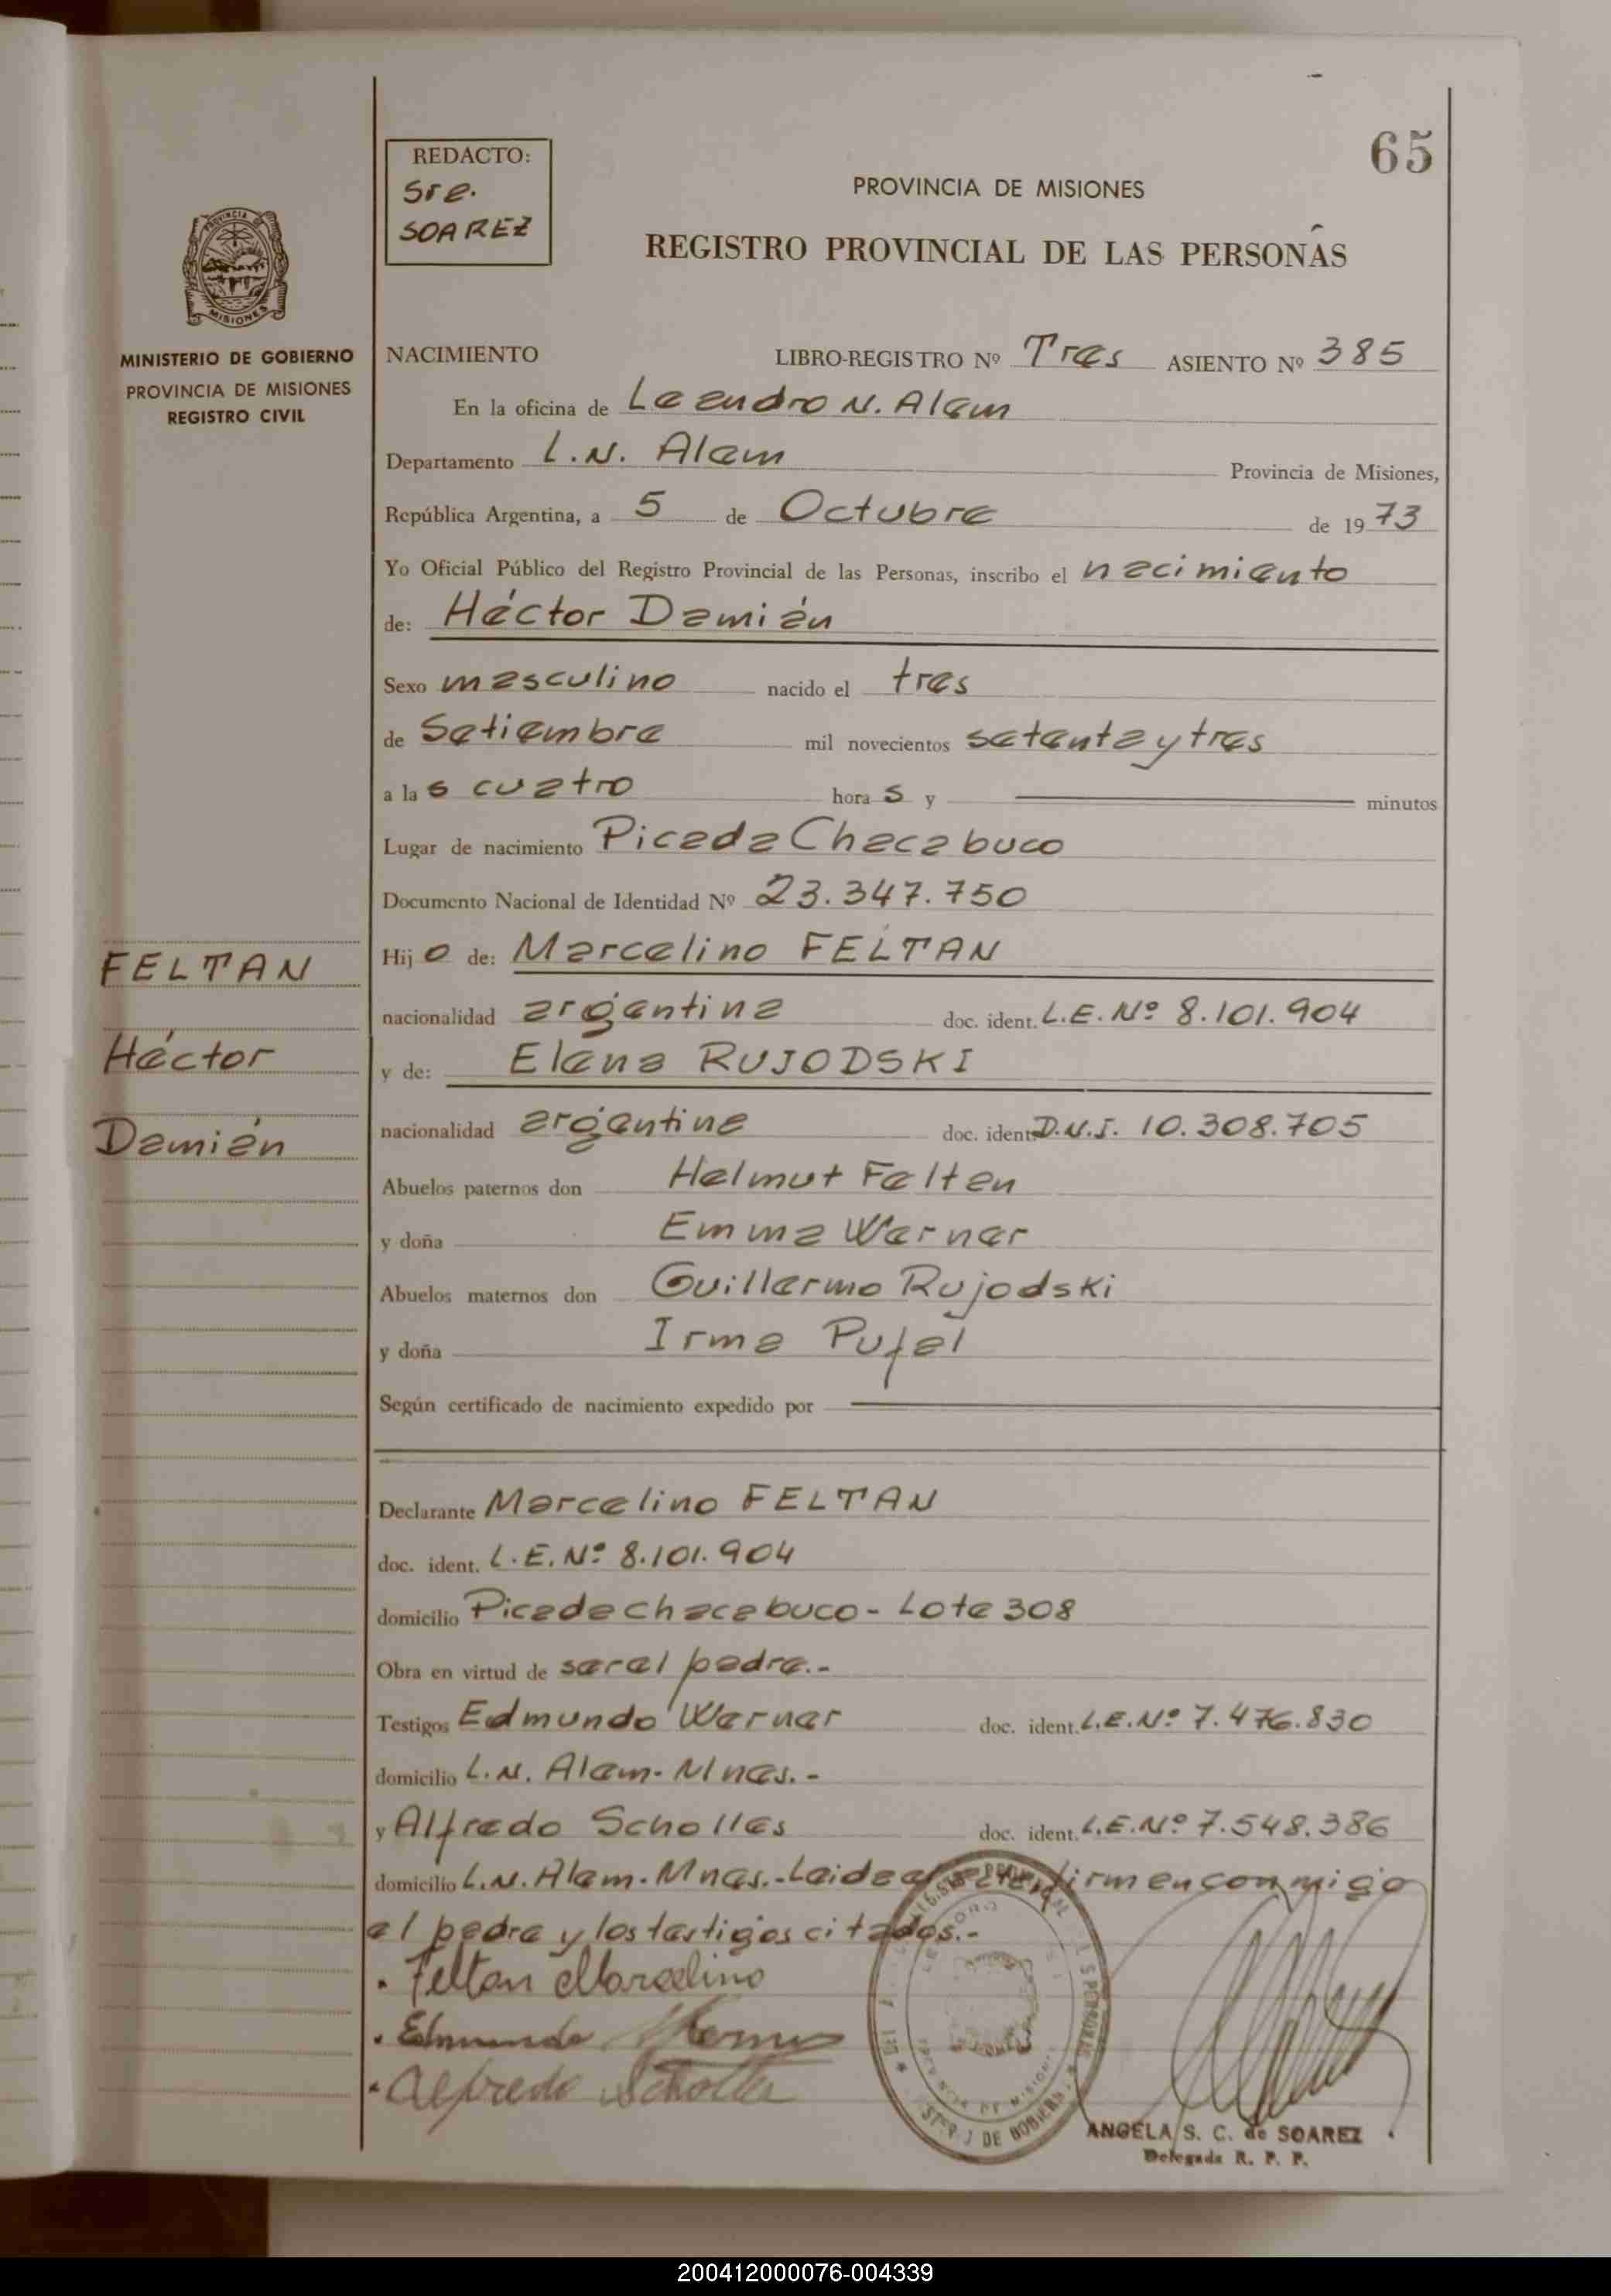 65
REDACTO:
Sra.
SOAREZ
PROVINCIA DE MISIONES
REGISTRO PROVINCIAL DE LAS PERSONAS
MINISTERIO DE GOBIERNO
PROVINCIA DE MISIONES
REGISTRO CIVIL
NACIMIENTO LIBRO-REGISTRO Nº Tres ASIENTO Nº 385
En la oficina de Leandro N. Alem
Departamento L.N. Alem Provincia de Misiones,
República Argentina, a 5 de Octubre de 1973
Yo Oficial Público del Registro Provincial de las Personas, inscribo el nacimiento
de: Héctor Damián
Sexo masculino nacido el tres
de Setiembre mil novecientos setenta y tres
a las cuatro horas y minutos
Lugar de nacimiento Picada Chacabuco
Documento Nacional de Identidad Nº 23.347.750
FELTAN
Héctor
Damián
Hijo de: Marcelino FELTAN
nacionalidad argentina doc. ident. L.E. Nº 8.101.904
y de: Elena RUJODSKI
nacionalidad argentina doc. ident. D.N.I. 10.308.705
Abuelos paternos don Helmut Feltan
y doña Emma Werner
Abuelos maternos don Guillermo Rujodski
y doña Irma Pufal
Según certificado de nacimiento expedido por
Declarante Marcelino FELTAN
doc. ident. L.E. Nº 8.101.904
domicilio Picada chacabuco - Lote 308
Obra en virtud de ser el padre.-
Testigos Edmundo Werner doc. ident. L.E. Nº 7.476.830
domicilio L.N. Alem - Mnes.-
y Alfredo Scholles doc. ident. L.E. Nº 7.548.386
domicilio L.N. Alem - Mnes.- Leida el acta, firman conmigo
el padre y los testigos citados.-
Feltan Marcelino
Edmundo Werner
Alfredo Scholles
ANGELA S. C. de SOAREZ
Delegada R. P. P.
200412000076-004339